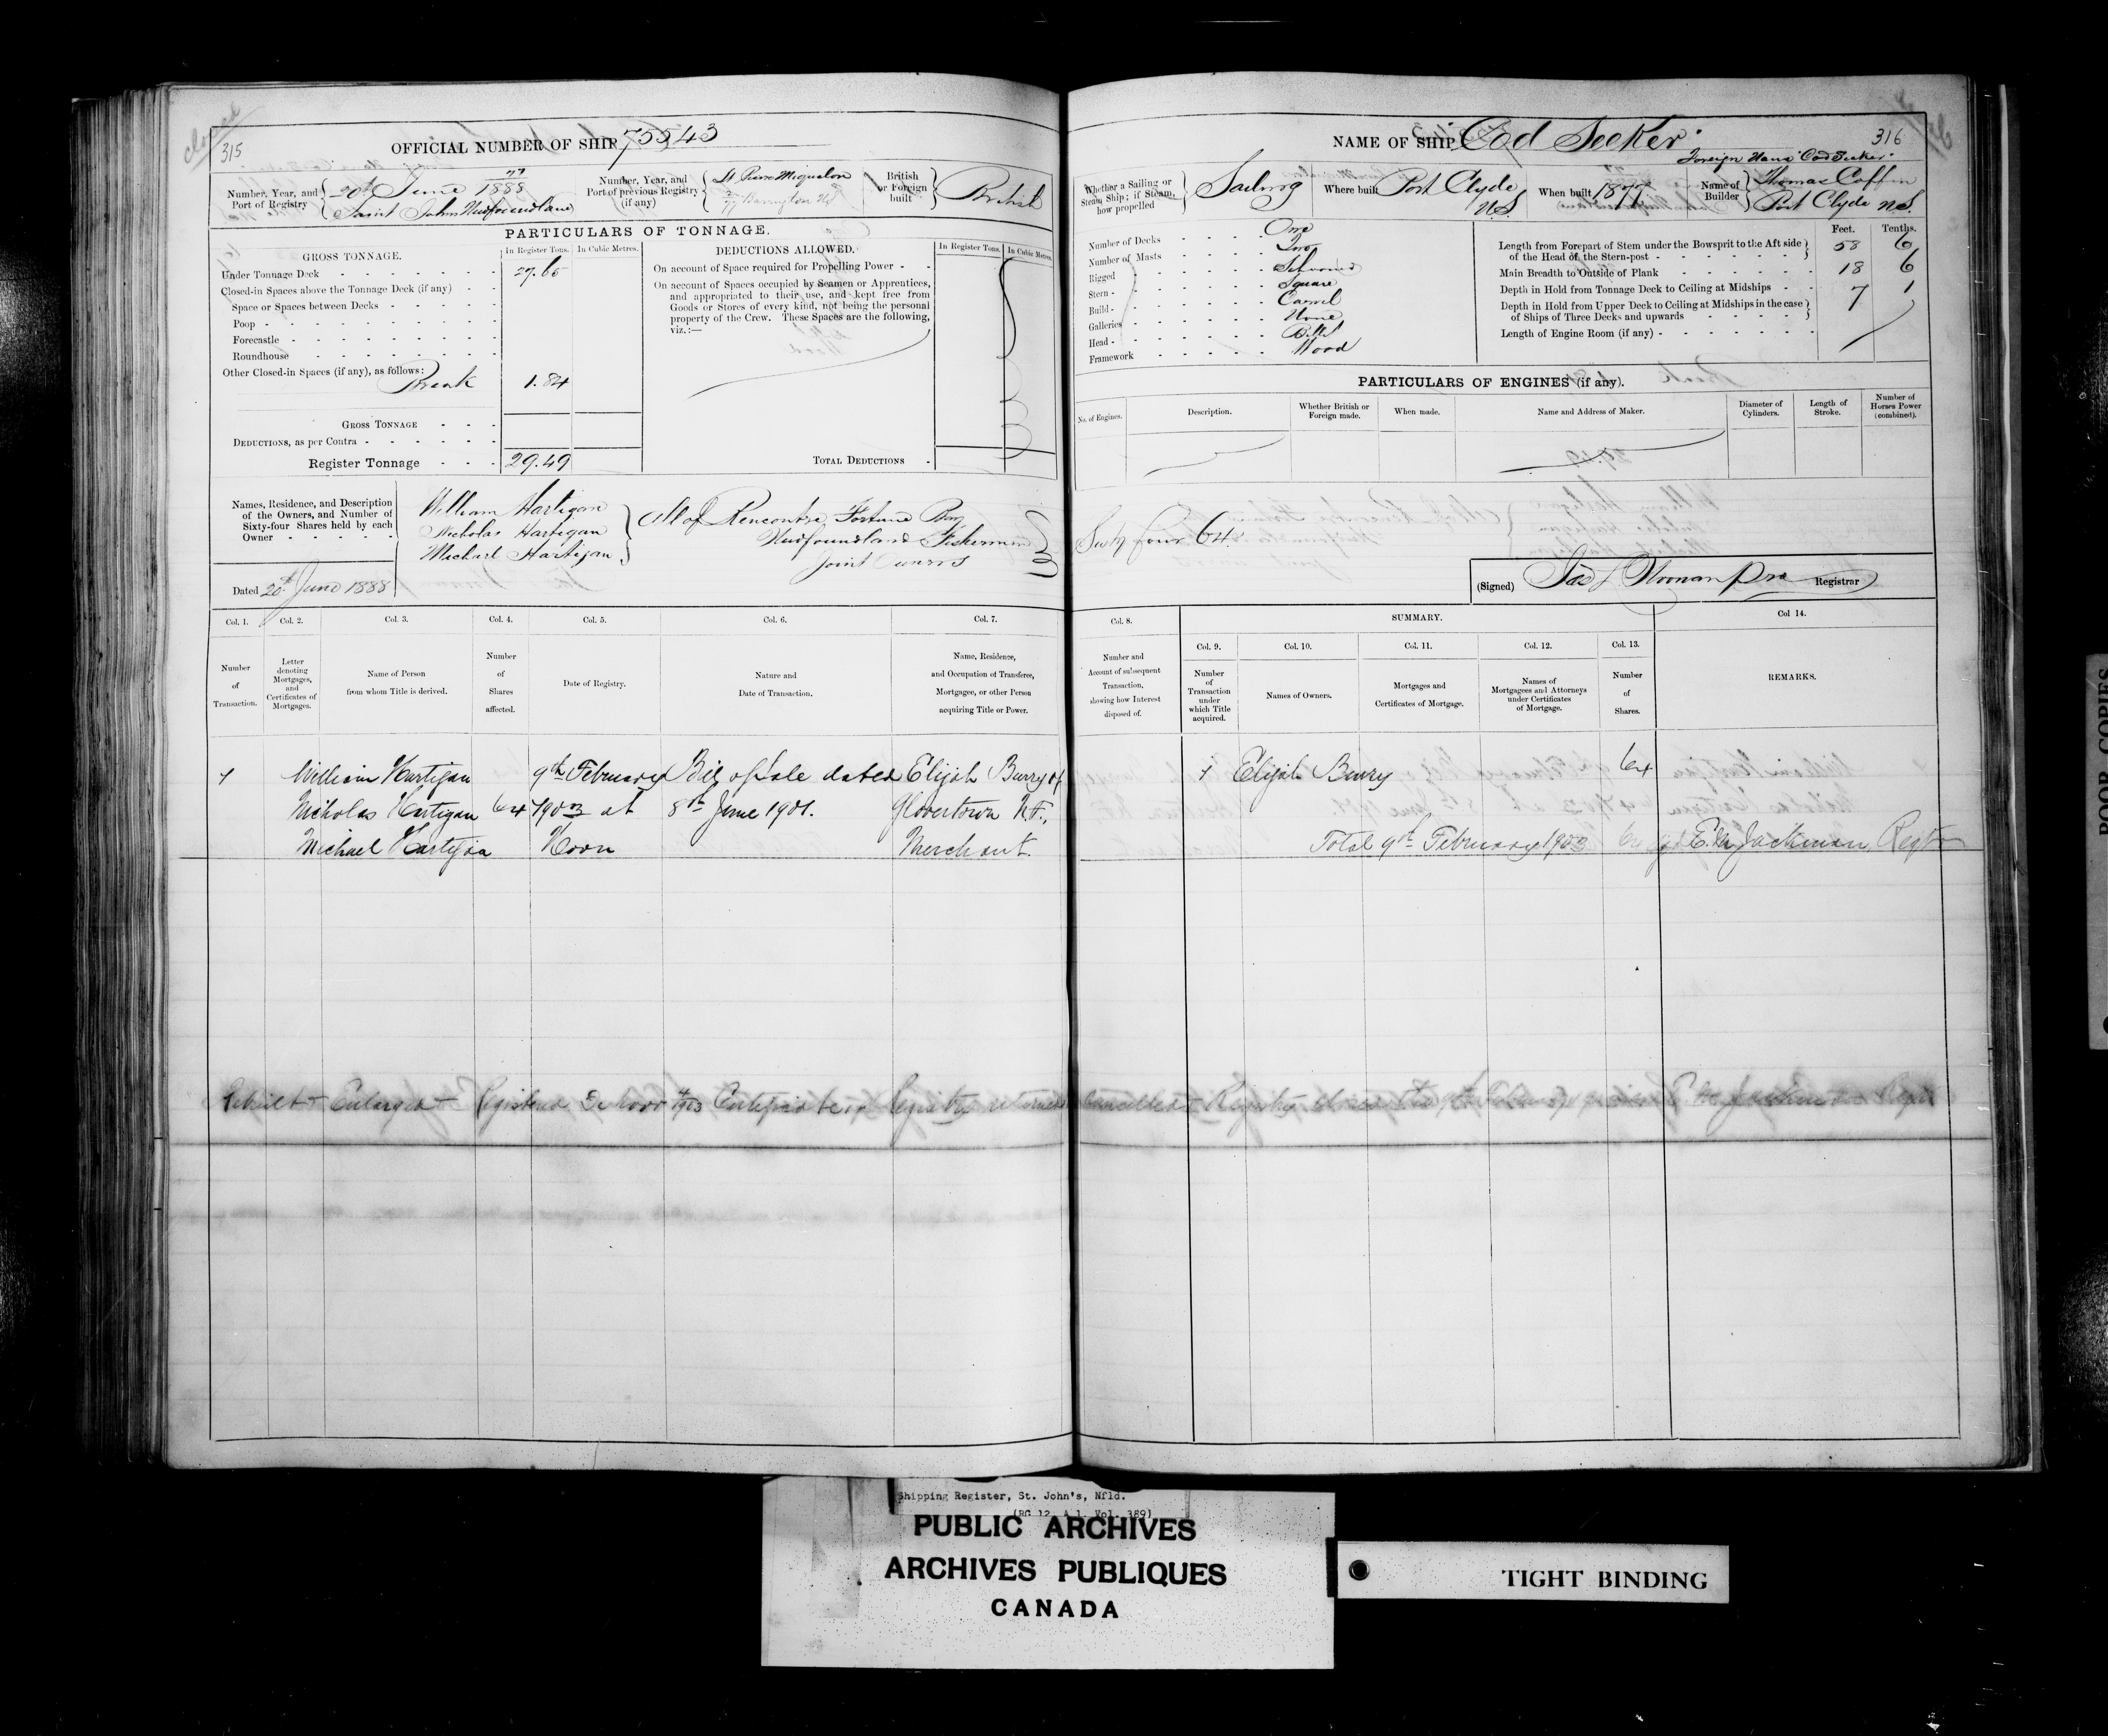 closed
315
OFFICIAL NUMBER OF SHIP 75543
Number, Year, and Port of Registry
20th June 1888
Saint Johns Newfoundland
Number, Year, and Port of previous Registry (if any)
St Pierre Miquelon
Barrington NS
British or Foreign built
British
PARTICULARS OF TONNAGE.
GROSS TONNAGE.
In Register Tons.
In Cubic Metres.
Under Tonnage Deck 27.65
Closed-in Spaces above the Tonnage Deck (if any)
Space or Spaces between Decks
Poop
Forecastle
Roundhouse
Other Closed-in Spaces (if any), as follows:
Break 1.84
GROSS TONNAGE
DEDUCTIONS, as per Contra
Register Tonnage 29.49
DEDUCTIONS ALLOWED.
In Register Tons.
In Cubic Metres.
On account of Space required for Propelling Power
On account of Spaces occupied by Seamen or Apprentices,
and appropriated to their use, and kept free from
Goods or Stores of every kind, not being the personal
property of the Crew. These Spaces are the following,
viz.:—
TOTAL DEDUCTIONS
Names, Residence, and Description
of the Owners, and Number of
Sixty-four Shares held by each
Owner
William Hartigan
Nicholas Hartigan
Michael Hartigan
All of Rencontre Fortune Bay
Newfoundland Fishermen
Joint Owners
Dated 20th June 1888
Col. 1.
Number of Transaction.
Col. 2.
Letter denoting Mortgages, and Certificates of Mortgages.
Col. 3.
Name of Person from whom Title is derived.
Col. 4.
Number of Shares affected.
Col. 5.
Date of Registry.
Col. 6.
Nature and Date of Transaction.
Col. 7.
Name, Residence, and Occupation of Transferee, Mortgagee, or other Person acquiring Title or Power.
1 William Hartigan 9th February Bill of Sale dated Elijah Burry of
Nicholas Hartigan 64 1903 at 8th June 1901. Glovertown N.F.,
Michael Hartigan Noon Merchant.
NAME OF SHIP "Cod Seeker"
316
Foreign Name "Cod Seeker"
Whether a Sailing or Steam Ship; if Steam, how propelled
Sailing
Where built
Port Clyde
N.S.
When built 1877
Name of Builder
Thomas Coffin
Port Clyde N.S.
Number of Decks One
Number of Masts Two
Rigged Schooner
Stern Square
Build Carvel
Galleries None
Head Billet
Framework Wood
Feet. Tenths.
Length from Forepart of Stem under the Bowsprit to the Aft side
of the Head of the Stern-post 58 6
Main Breadth to Outside of Plank 18 6
Depth in Hold from Tonnage Deck to Ceiling at Midships 7 1
Depth in Hold from Upper Deck to Ceiling at Midships in the case
of Ships of Three Decks and upwards
Length of Engine Room (if any)
PARTICULARS OF ENGINES (if any).
No. of Engines.
Description.
Whether British or Foreign made.
When made.
Name and Address of Maker.
Diameter of Cylinders.
Length of Stroke.
Number of Horses Power (combined).
Sixty four 64
(Signed) Registrar
SUMMARY.
Col. 8.
Number and Account of subsequent Transaction, showing how Interest disposed of.
Col. 9.
Number of Transaction under which Title acquired.
Col. 10.
Names of Owners.
Col. 11.
Mortgages and Certificates of Mortgage.
Col. 12.
Names of Mortgagees and Attorneys under Certificates of Mortgage.
Col. 13.
Number of Shares.
Col 14.
REMARKS.
1 Elijah Burry 64
Total 9th February 1903 64 E.M. Jackman, Regtr
Rebuilt & Enlarged & Registered De Novo 1903 Certificate of Registry returned cancelled & Registry closed this 9th February E.M. Jackman Regtr
Shipping Register, St. John's, Nfld.
(RG 12, A 1, Vol. 389)
PUBLIC ARCHIVES
ARCHIVES PUBLIQUES
CANADA
TIGHT BINDING
POOR COPIES